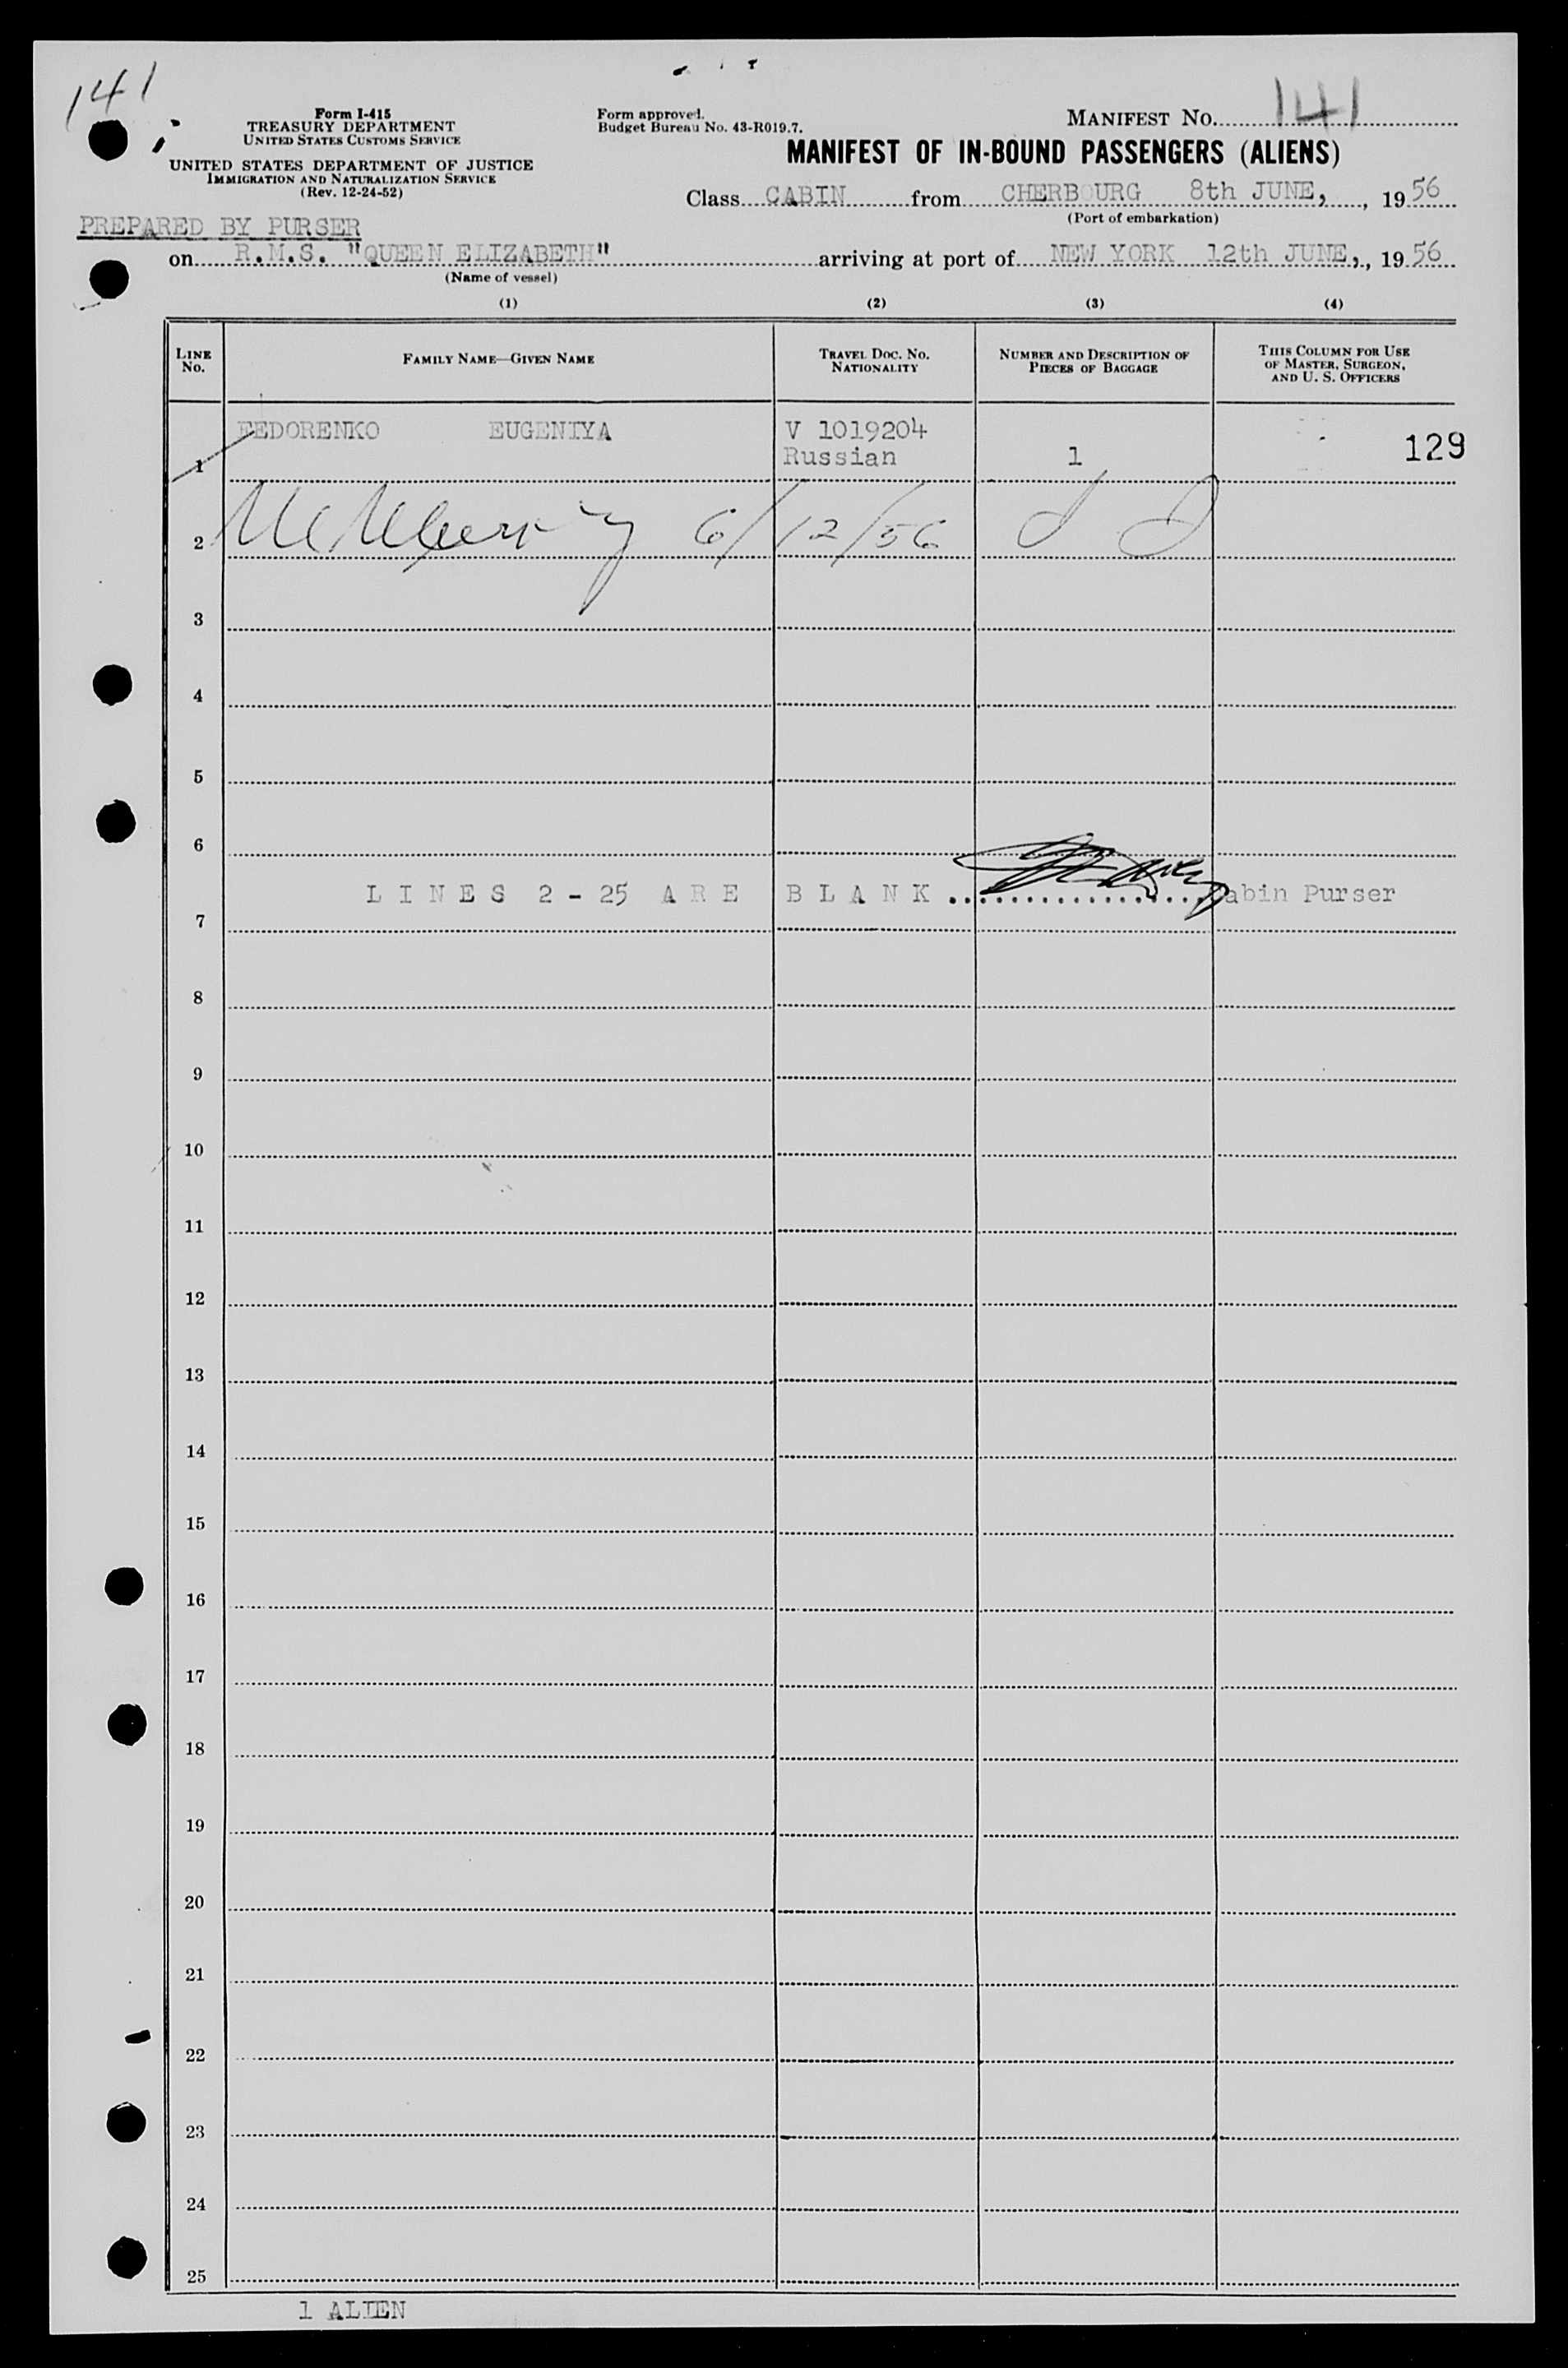 141
Form I-415
TREASURY DEPARTMENT
UNITED STATES CUSTOMS SERVICE
UNITED STATES DEPARTMENT OF JUSTICE
IMMIGRATION AND NATURALIZATION SERVICE
(Rev. 12-24-52)
Form approved.
Budget Bureau No. 43-R019.7.
MANIFEST NO. 141
MANIFEST OF IN-BOUND PASSENGERS (ALIENS)
Class CABIN from CHERBOURG 8th JUNE, , 19 56
(Port of embarkation)
PREPARED BY PURSER
on R.M.S. "QUEEN ELIZABETH" arriving at port of NEW YORK 12th JUNE, , 19 56
(Name of vessel)
(1) (2) (3) (4)
LINE No. FAMILY NAME—GIVEN NAME TRAVEL DOC. NO. NATIONALITY NUMBER AND DESCRIPTION OF PIECES OF BAGGAGE THIS COLUMN FOR USE OF MASTER, SURGEON, AND U. S. OFFICERS
FEDORENKO EUGENIYA V 1019204
1 Russian 1 129
2 6/12/56
3
4
5
6
LINES 2 - 25 ARE BLANK abin Purser
7
8
9
10
11
12
13
14
15
16
17
18
19
20
21
22
23
24
25
1 ALIEN